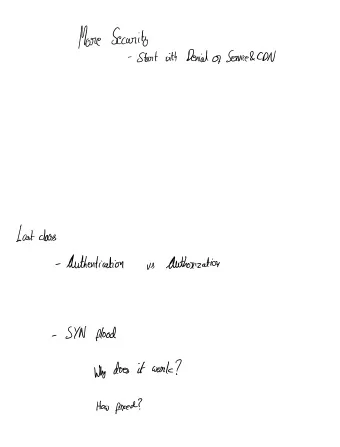 More Security
- Start with Denial of Service & CDN
Last class
- Authentication vs Authorization
- SYN flood
Why does it work?
How fixed?